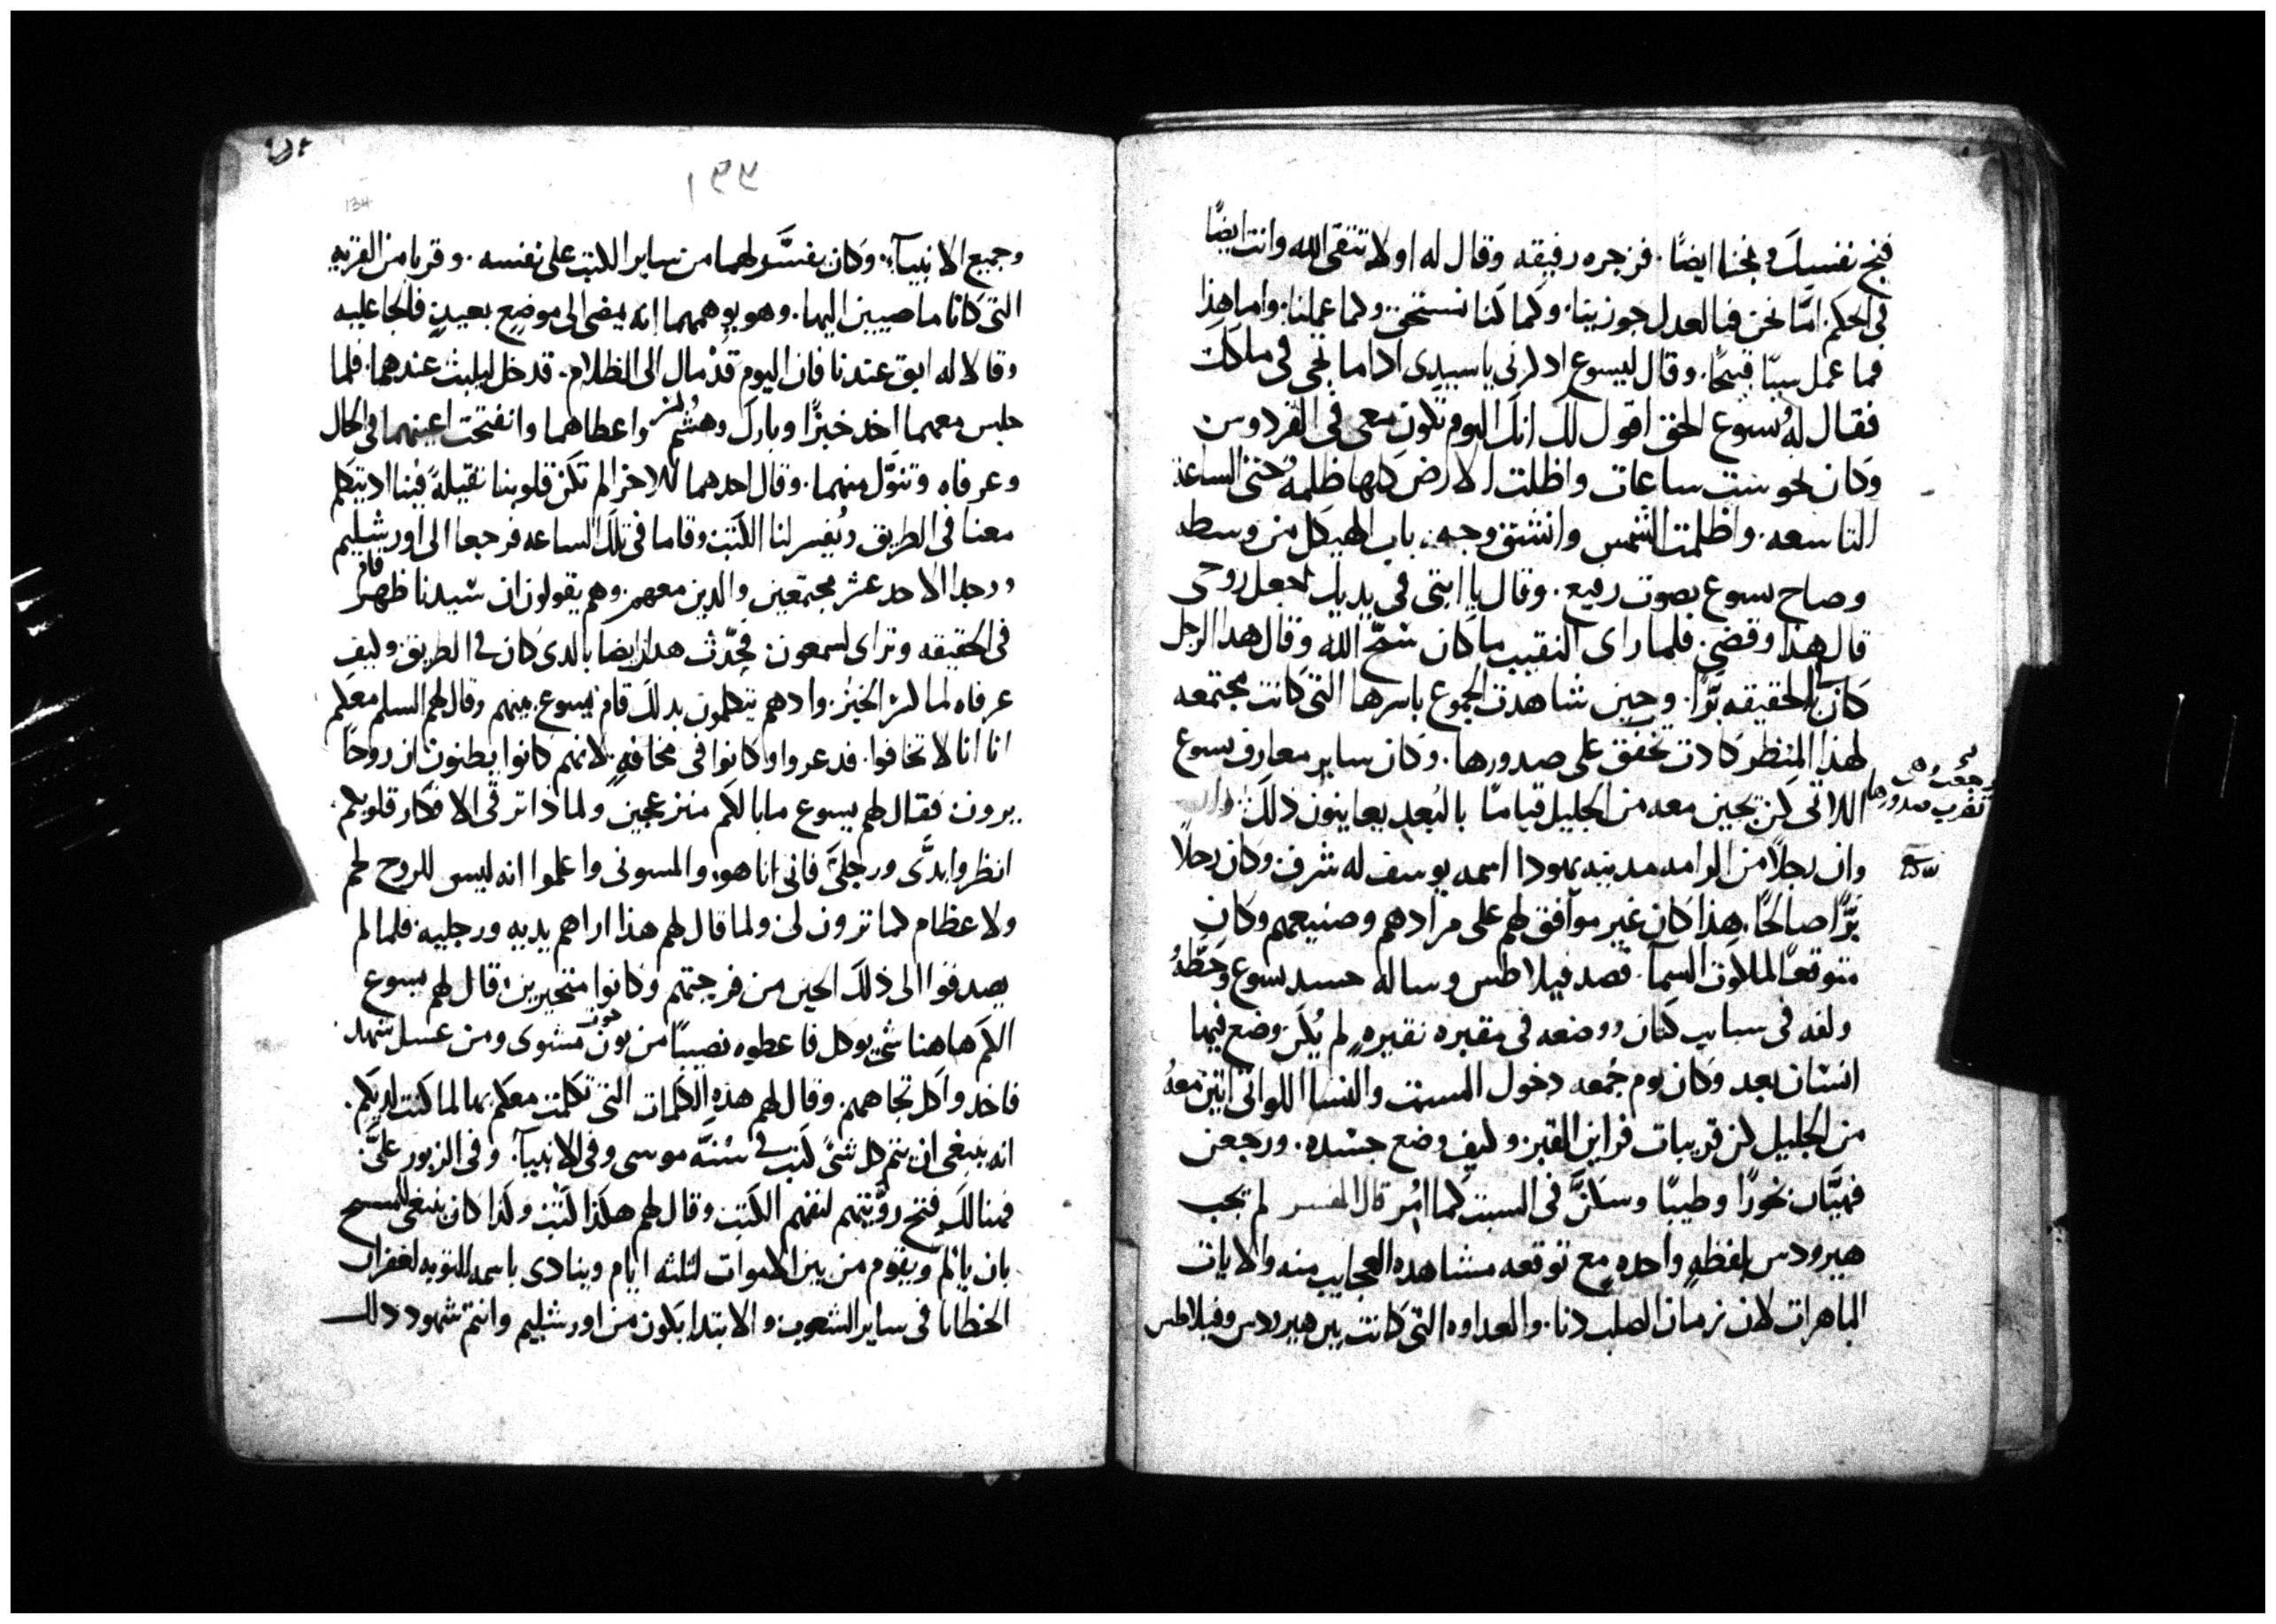 فنج نفسك ونجنا ايضًا. فزجره رفيقه وقال له اولا تتقى الله وانت ايضًا
فى الحكم. امّا نحن فبالعدل جوزينا. وكما كنا نستحق وكما عملنا. واما هذا
فما عمل سيّا قبيحًا. وقال ليسوع ادكرنى ياسيدى اداما تجى فى ملكوتك
فقال له يسوع الحق اقول لك انك اليوم تكون معى فى الفردوس
وكان نحو ست ساعات واظلت الارض كلها ظلمة حتى الساعة
التاسعه. واظلمت الشمس وانشق وجه باب الهيكل من وسطه
وصاح يسوع بصوت رفيع. وقال يا ابتى فى يديك اجعل روحى
قال هذا وقضى. فلما راى النقيب ما كان سّبح الله وقال هدا الرجل
كان فى الحقيقه بّرًا. وحين شاهدت الجموع باسرها التى كانت مجتمعه
لهذا المنظر كادت تخفق على صدورها. وكان ساير معارف يسوع
رجعت وهى
تضرب صدورها
اللاتى كن يجين معه من الجليل قيامًا بالبعد يعاينون ذلك
وان رجلًا من الرامه مدينه يهودا اسمه يوسف له شرف وكان رجلًا
بّرًا صالحًا. هذا كان غير موافق لهم على مرادهم وصنيعهم وكان
متوقعًا لملكوت السمآ. قصد فيلاطس وساله جسد يسوع وحطّه
ولفه فى سباب كتان ووضعه فى مقبره نقيره لم يكن وضع فيها
انسان بعد وكان يوم جمعه دخول السبت والنسا اللواتى اتين معه
من الجليل كن قريبات فراين القبر وكيف وضع جسده. ورجعن
فهيّان بخورًا وطيبًا وسكنّ فى السبت كما امُر قال المفسر لم يجب
هيرودس بلفظه واحده مع توقعه مشاهده العجايب منه والايات
الباهرات لان زمان الصلب دنا. والعداوه التى كانت بين هيرودس وفيلاطس
١٣٣
134
وجميع الانبيآء. وكان يفسّر لهما من ساير الكتب على نفسه. وقربا من القريه
التى كانا ماضيين اليها. وهو يوهمهما انه يمضى الى موضع بعيد فالجا عليه
وقالا له ابق عندنا فان اليوم قد مال الى الظلام. فدخل ليلبث عندهما. فلما
جلس معهما اخد خبزًا وبارك وهشم كسر واعطاهما وانفتحت اعينهما فى الحال
وعرفاه وتنوّل منهما. وقال احدهما للاخر الم تكن قلوبنا ثقيلة فينا اد يتكلم
معنا فى الطريق ويفسر لنا الكتب وقاما فى تلك الساعه فرجعا الى اورشليم
ووجدا الاحد عشر مجتمعين والدين معهم. وهم يقولون ان سيدنا قام ظهر
فى الحقيقه وتراى لسمعون فحدّث هدان ايضا بالدى كان فى الطريق وكيف
عرفاه لما كسر الخبز. واد هم يتكلمون بدلك قام يسوع بينهم وقال لهم السلم معكم
انا انا لا تخافوا. فدعروا وكانوا فى مخافه. لانهم كانوا يظنون ان روحا
يرون فقال لهم يسوع ما بالكم منزعجين ولمادا ترقى الافكار قلوبكم
انظروا يدّى ورجلىّ فانى انا هو. والمسونى واعلموا انه ليس للروح لحم
ولا عظام كما ترون لى ولما قال لهم هذا اراهم يديه ورجليه. فلما لم
يصدقوا الى ذلك الحين من فرحتهم وكانوا متحيرين قال لهم يسوع
الكم هاهنا شى يوكل فاعطوه نصيبًا من نون حوت مشوى ومن عسل شهد
فاخد واكل تجاههم. وقال لهم هذه الكلمات التى تكلمت معكم بها لما كنت لديكم.
انه ينبغى ان يتم كل شئ كتب فى سنّه موسى وفى الانبيآ. وفى الزبور علىّ.
فهنالك فتح رؤيتهم لتفهم الكتب وقال لهم هكذا كتب وكذا كان ينبغى للمسيح
بان يالم ويقوم من بين الاموات لثلثه ايام وينادى باسمه للتوبه لغفران
الخطايا فى ساير الشعوب. والابتدا يكون من اورشليم وانتم شهود دلك